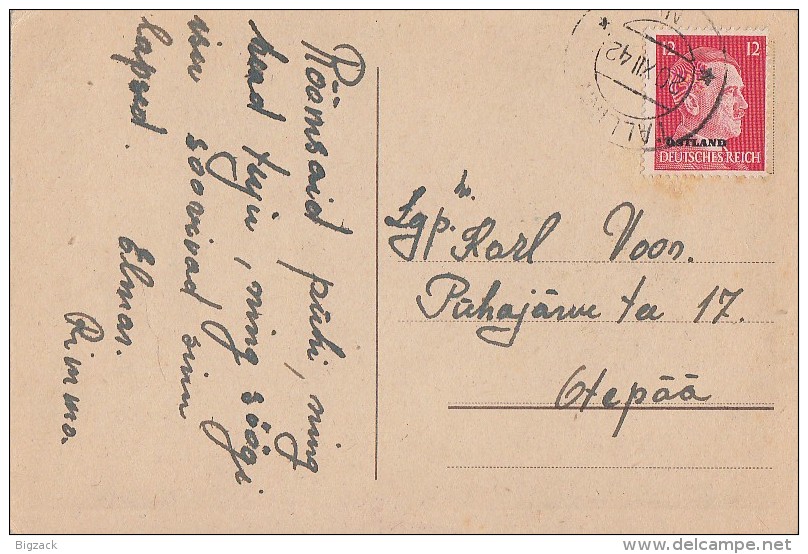 Rõõmsaid pühi, ning
head tuju, ning söögi
isu soovivad sinu
lapsed
Elmar.
Rimma.
12 12
OSTLAND
DEUTSCHES REICH
XII 42
hr.
Lgp. Karl Voor.
Pühajärve tee 17.
Otepää
Bigzack
delcampe.net